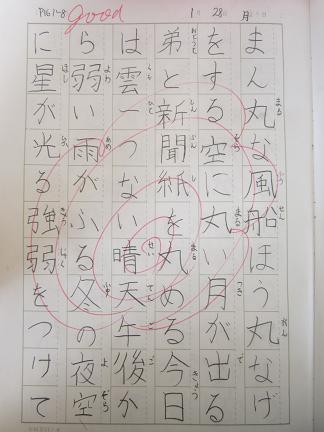 good
1月 28日 月
まん丸な風船ほう丸なげ
をする空に丸い月が出る
弟と新聞紙を丸める今日
は雲一つない晴天午後か
ら弱い雨がふる冬の夜空
に星が光る強弱をつけて